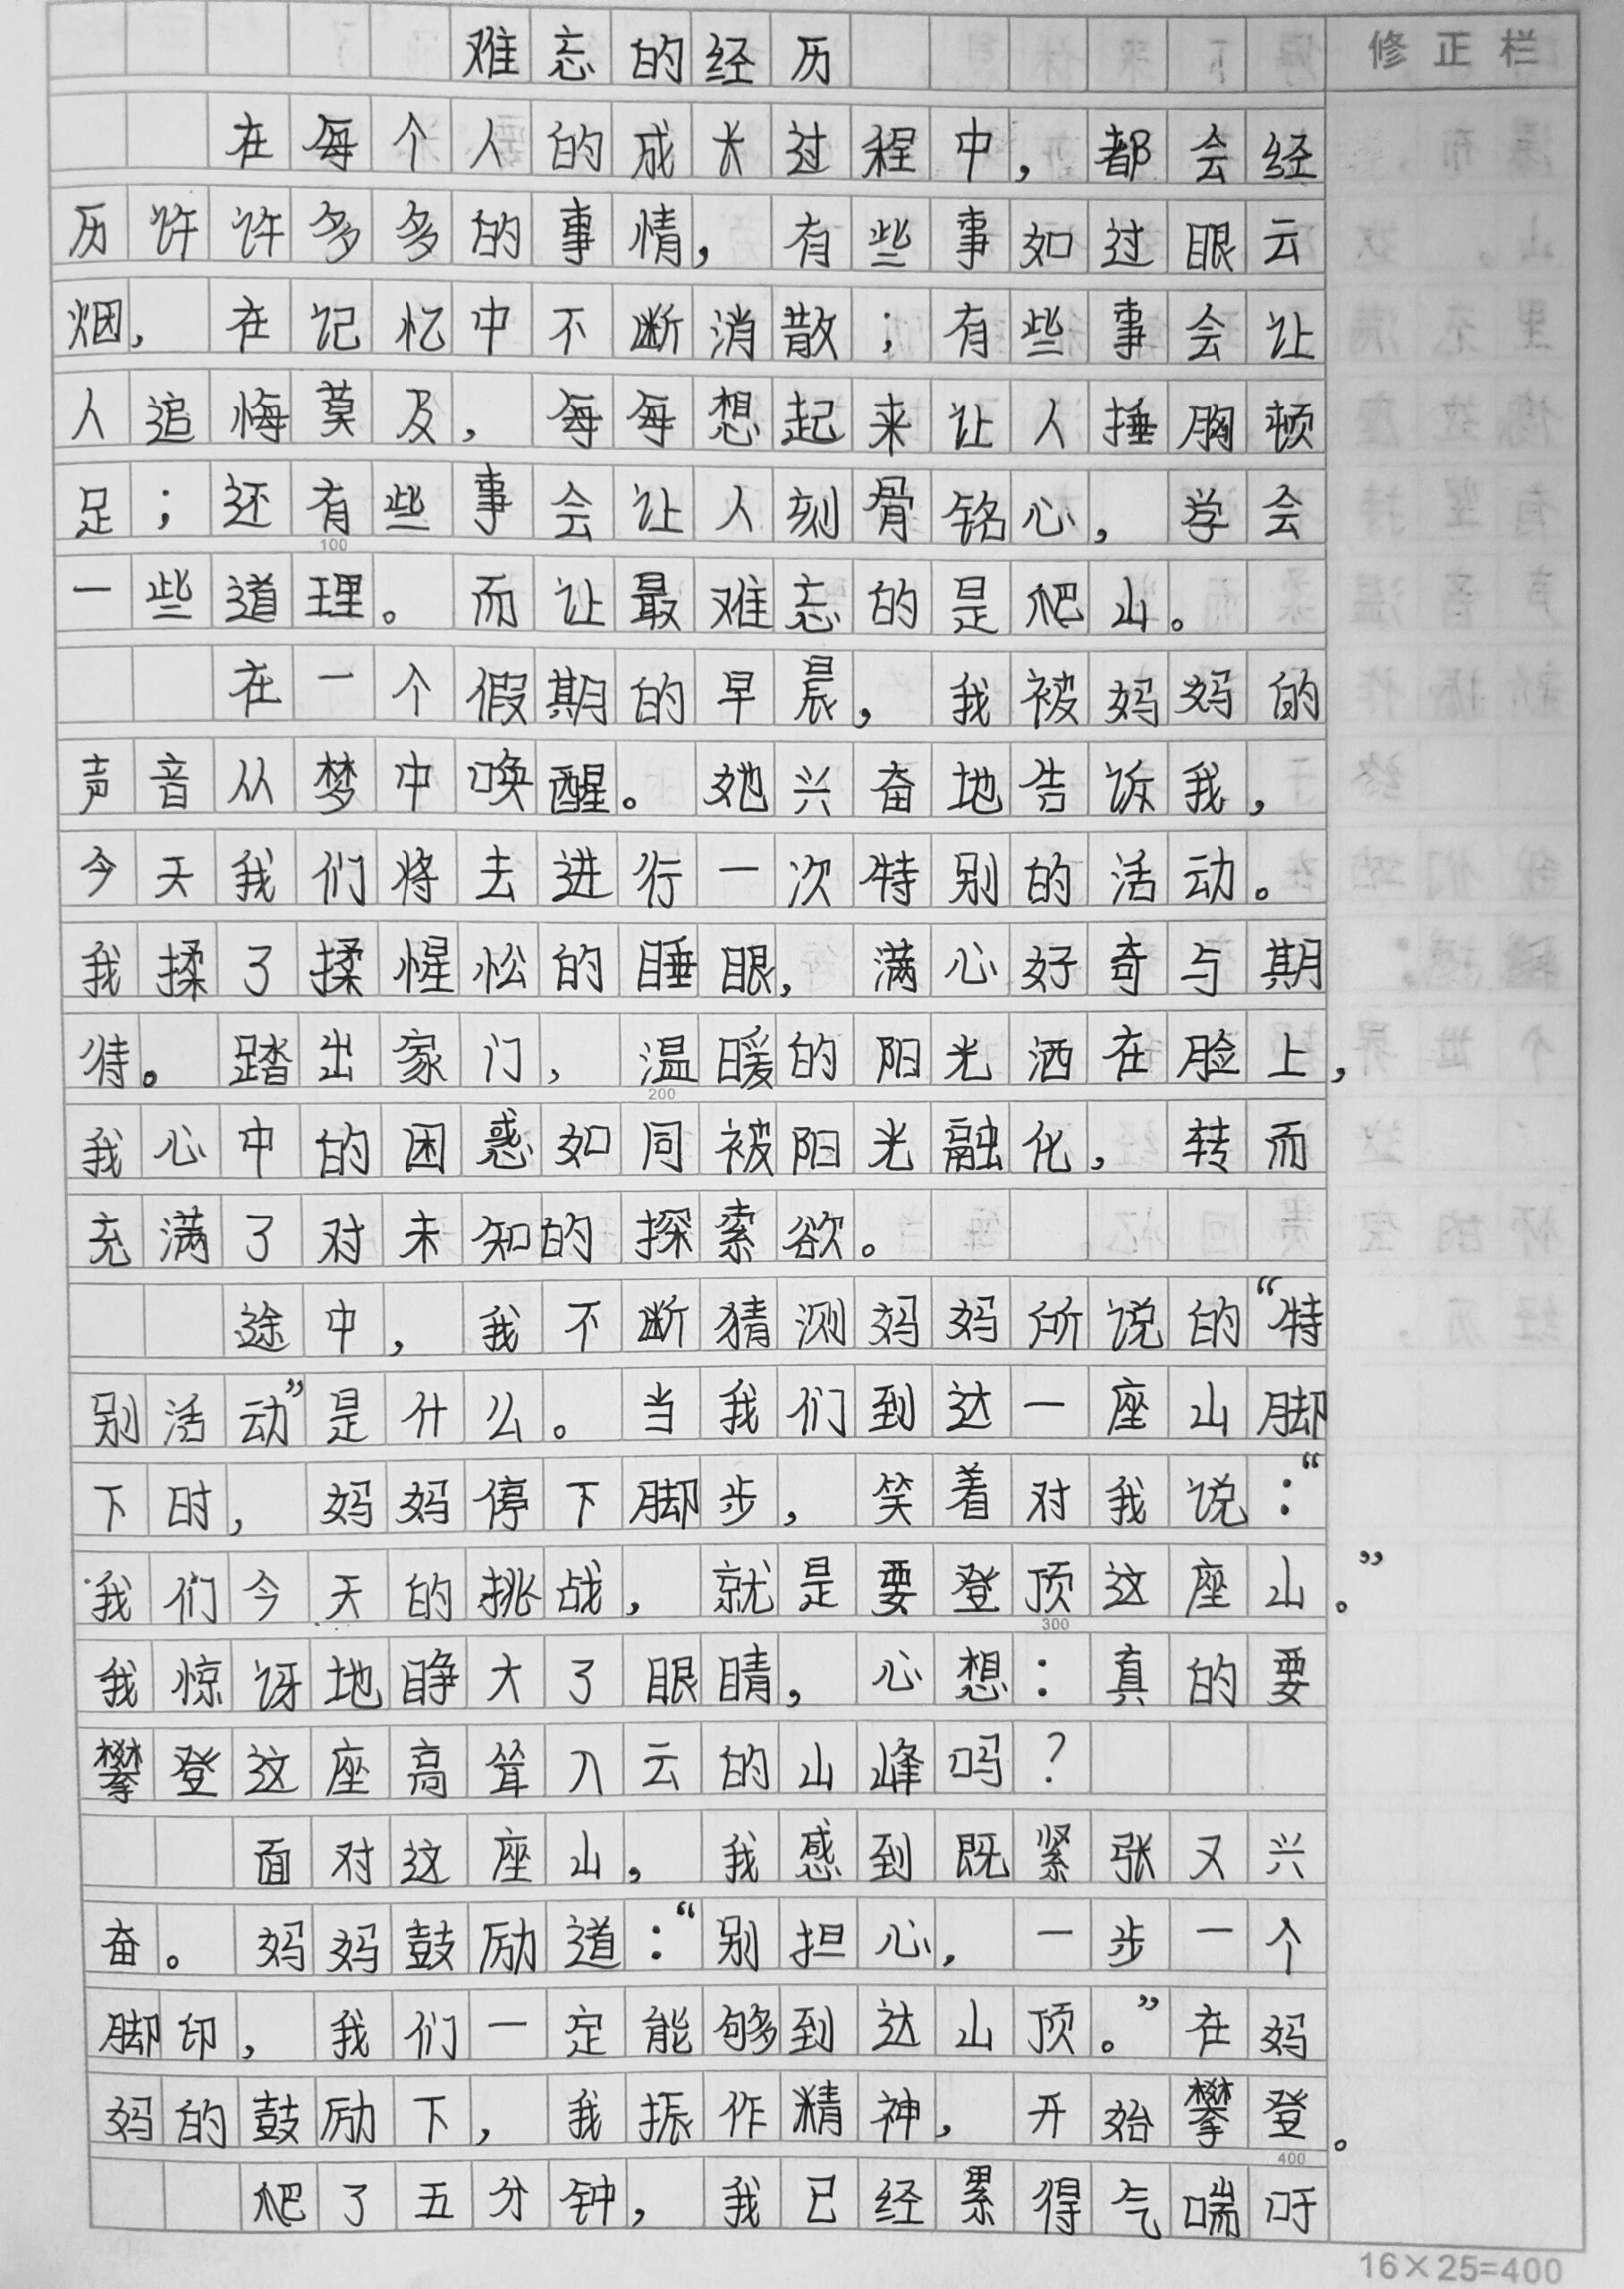 难忘的经历
修正栏
在每个人的成长过程中，都会经
历许许多多的事情，有些事如过眼云
烟，在记忆中不断消散；有些事会让
人追悔莫及，每每想起来让人捶胸顿
足；还有些事会让人刻骨铭心，学会
100
一些道理。而让最难忘的是爬山。
在一个假期的早晨，我被妈妈的
声音从梦中唤醒。她兴奋地告诉我，
今天我们将去进行一次特别的活动。
我揉了揉惺忪的睡眼，满心好奇与期
待。踏出家门，温暖的阳光洒在脸上，
200
我心中的困惑如同被阳光融化，转而
充满了对未知的探索欲。
途中，我不断猜测妈妈所说的“特
别活动”是什么。当我们到达一座山脚
下时，妈妈停下脚步，笑着对我说：“
我们今天的挑战，就是要登顶这座山。”
300
我惊讶地睁大了眼睛，心想：真的要
攀登这座高耸入云的山峰吗？
面对这座山，我感到既紧张又兴
奋。妈妈鼓励道：“别担心，一步一个
脚印，我们一定能够到达山顶。”在妈
妈的鼓励下，我振作精神，开始攀登。
400
爬了五分钟，我已经累得气喘吁
16×25=400